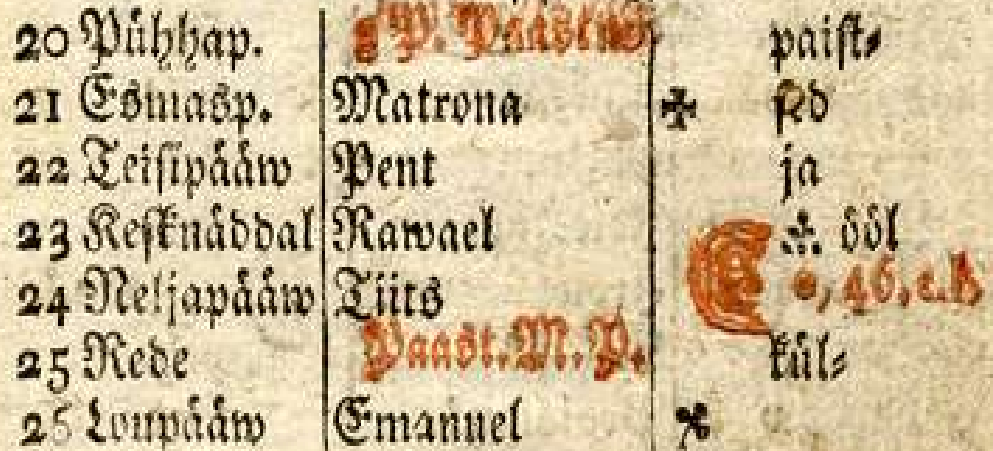 20 Pühhap. P. Paastus paist⸗
21 Esmasp. Matrona ✠ sed
22 Teisipääw Pent ja
23 Kesknäddal Rawael ööl
24 Neljapääw Tiits 46,
25 Rede Paast. M. P. kül⸗
26 Loupääw Emanuel